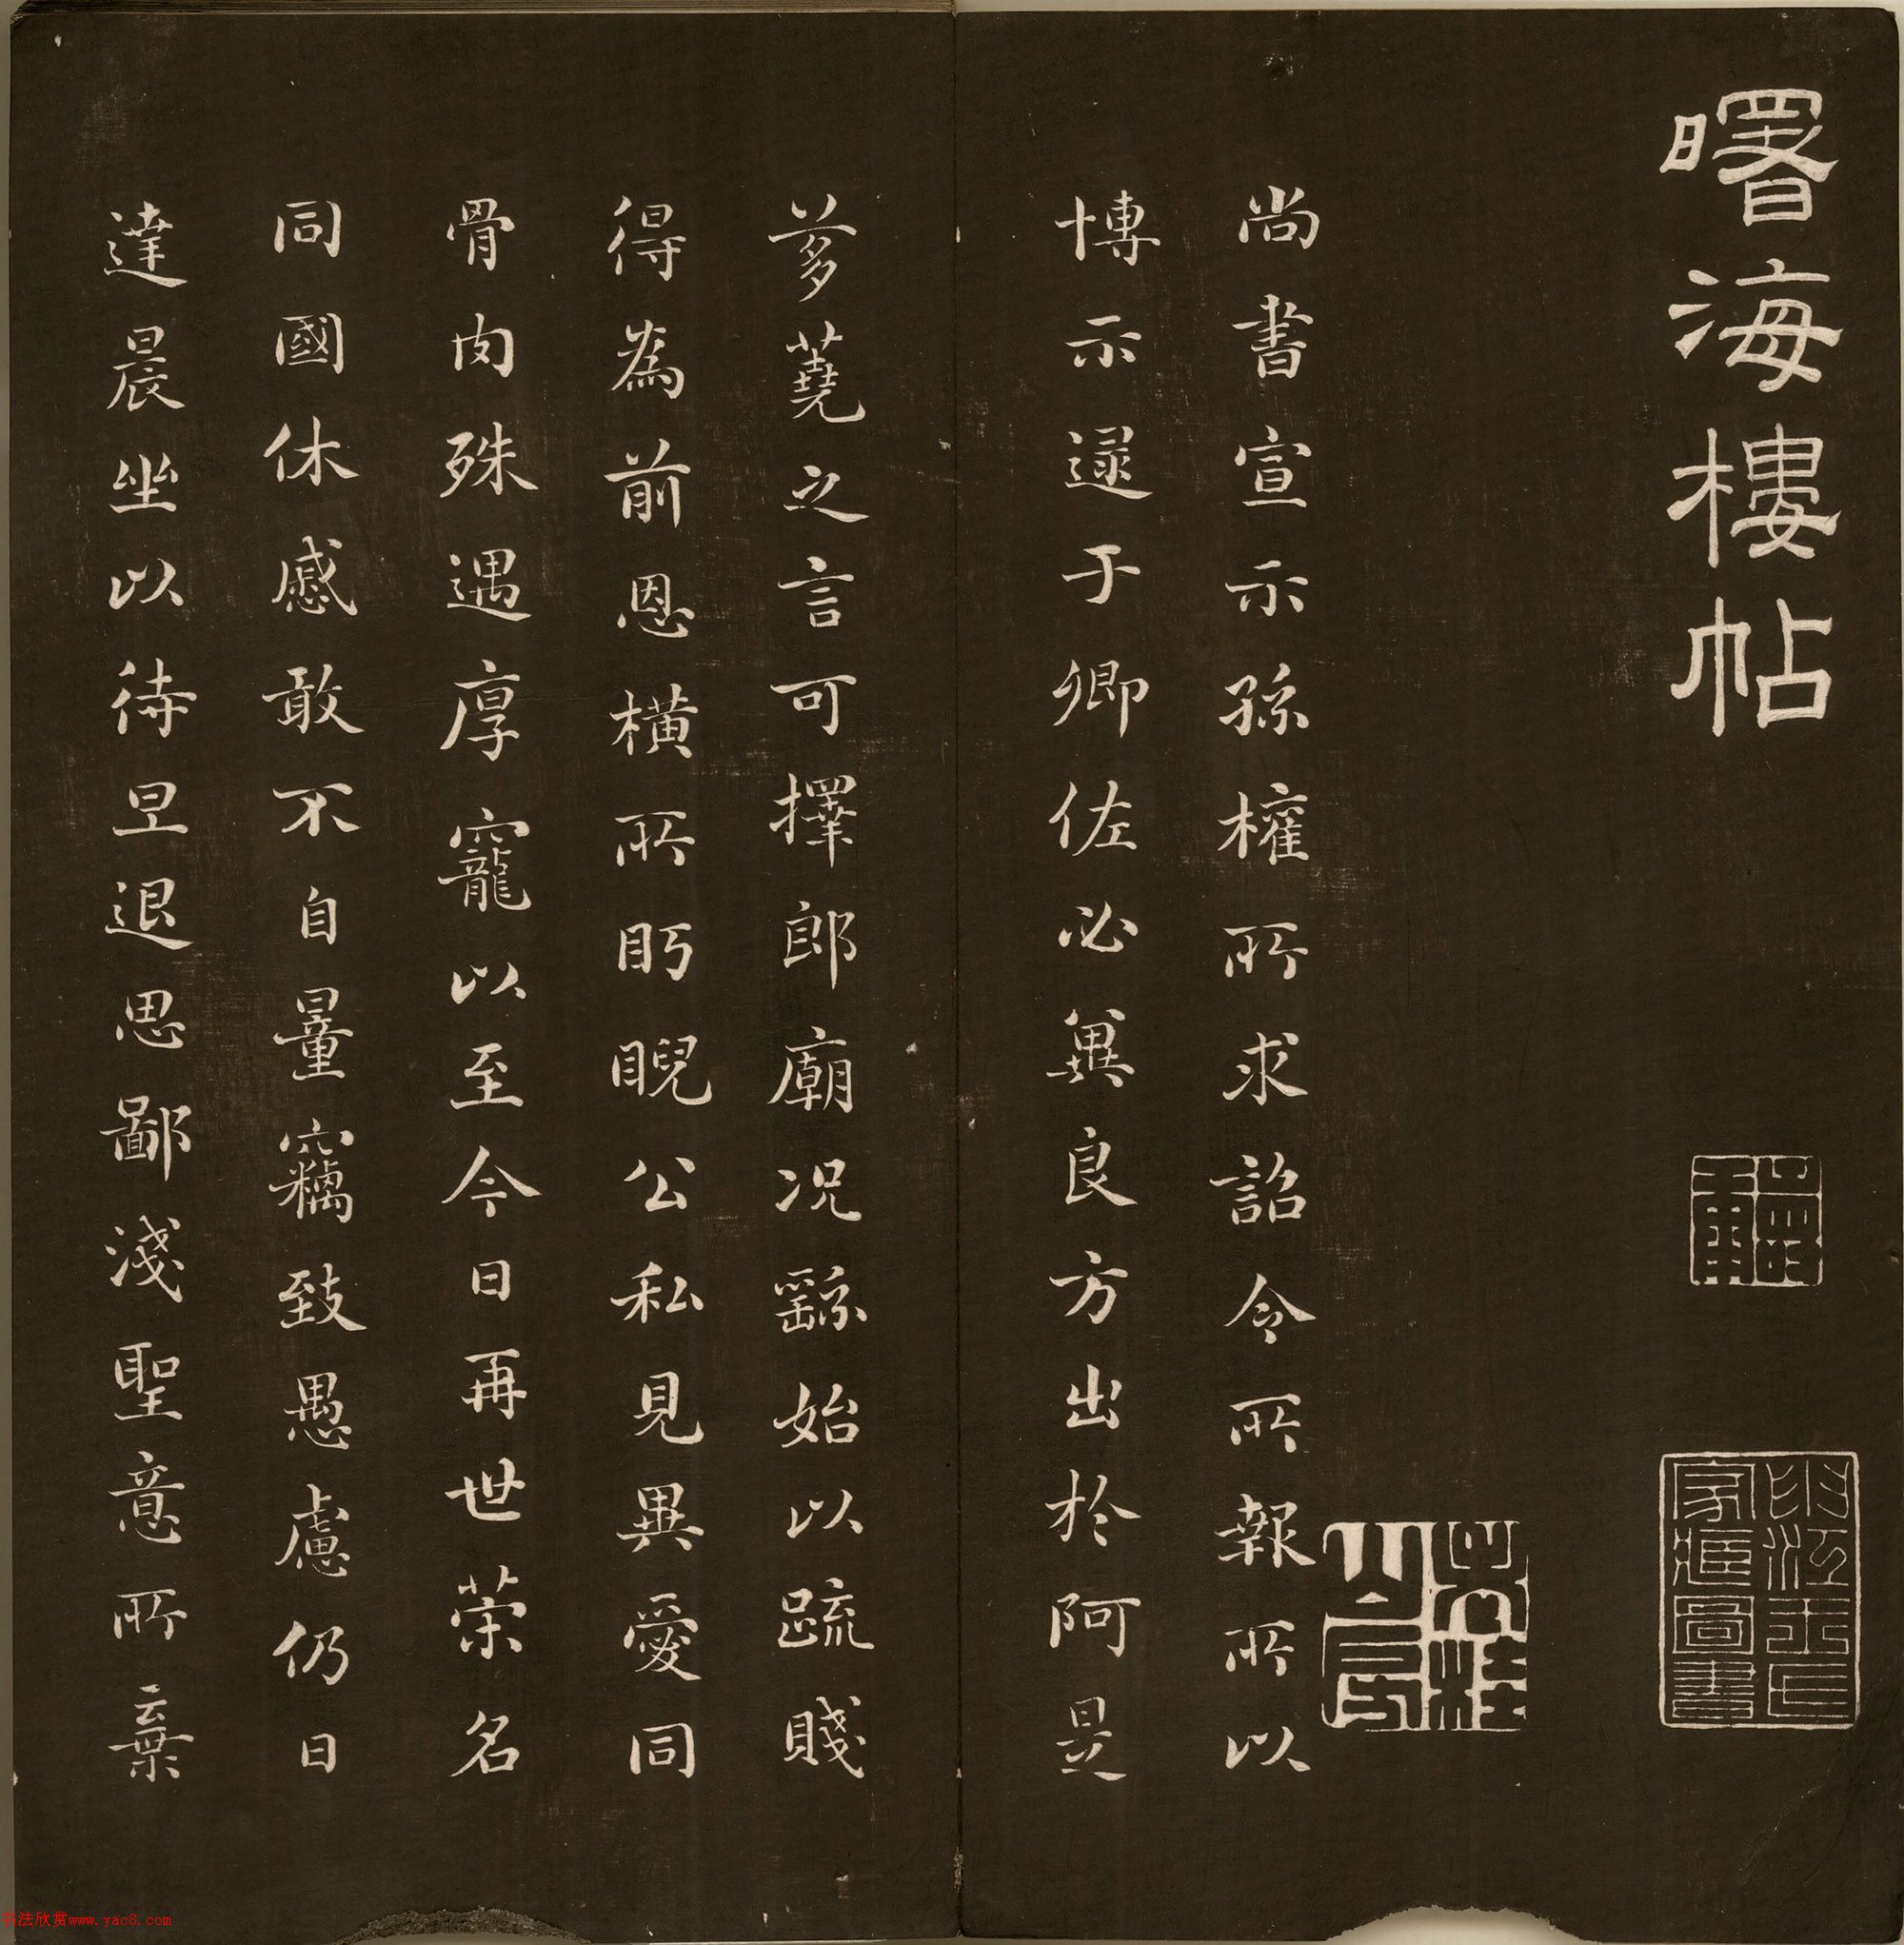 曙海樓帖
尚書宣示孫權所求詔令所報所以
博示逮于卿佐必冀良方出於阿是
芻蕘之言可擇郎廟況繇始以疏賤
得為前恩橫所眄睨公私見異愛同
骨肉殊遇厚寵以至今日再世榮名
同國休慼敢不自量竊致愚慮仍日
達晨坐以待旦退思鄙淺聖意所棄
家藏圖書
书法欣赏www.yac8.com